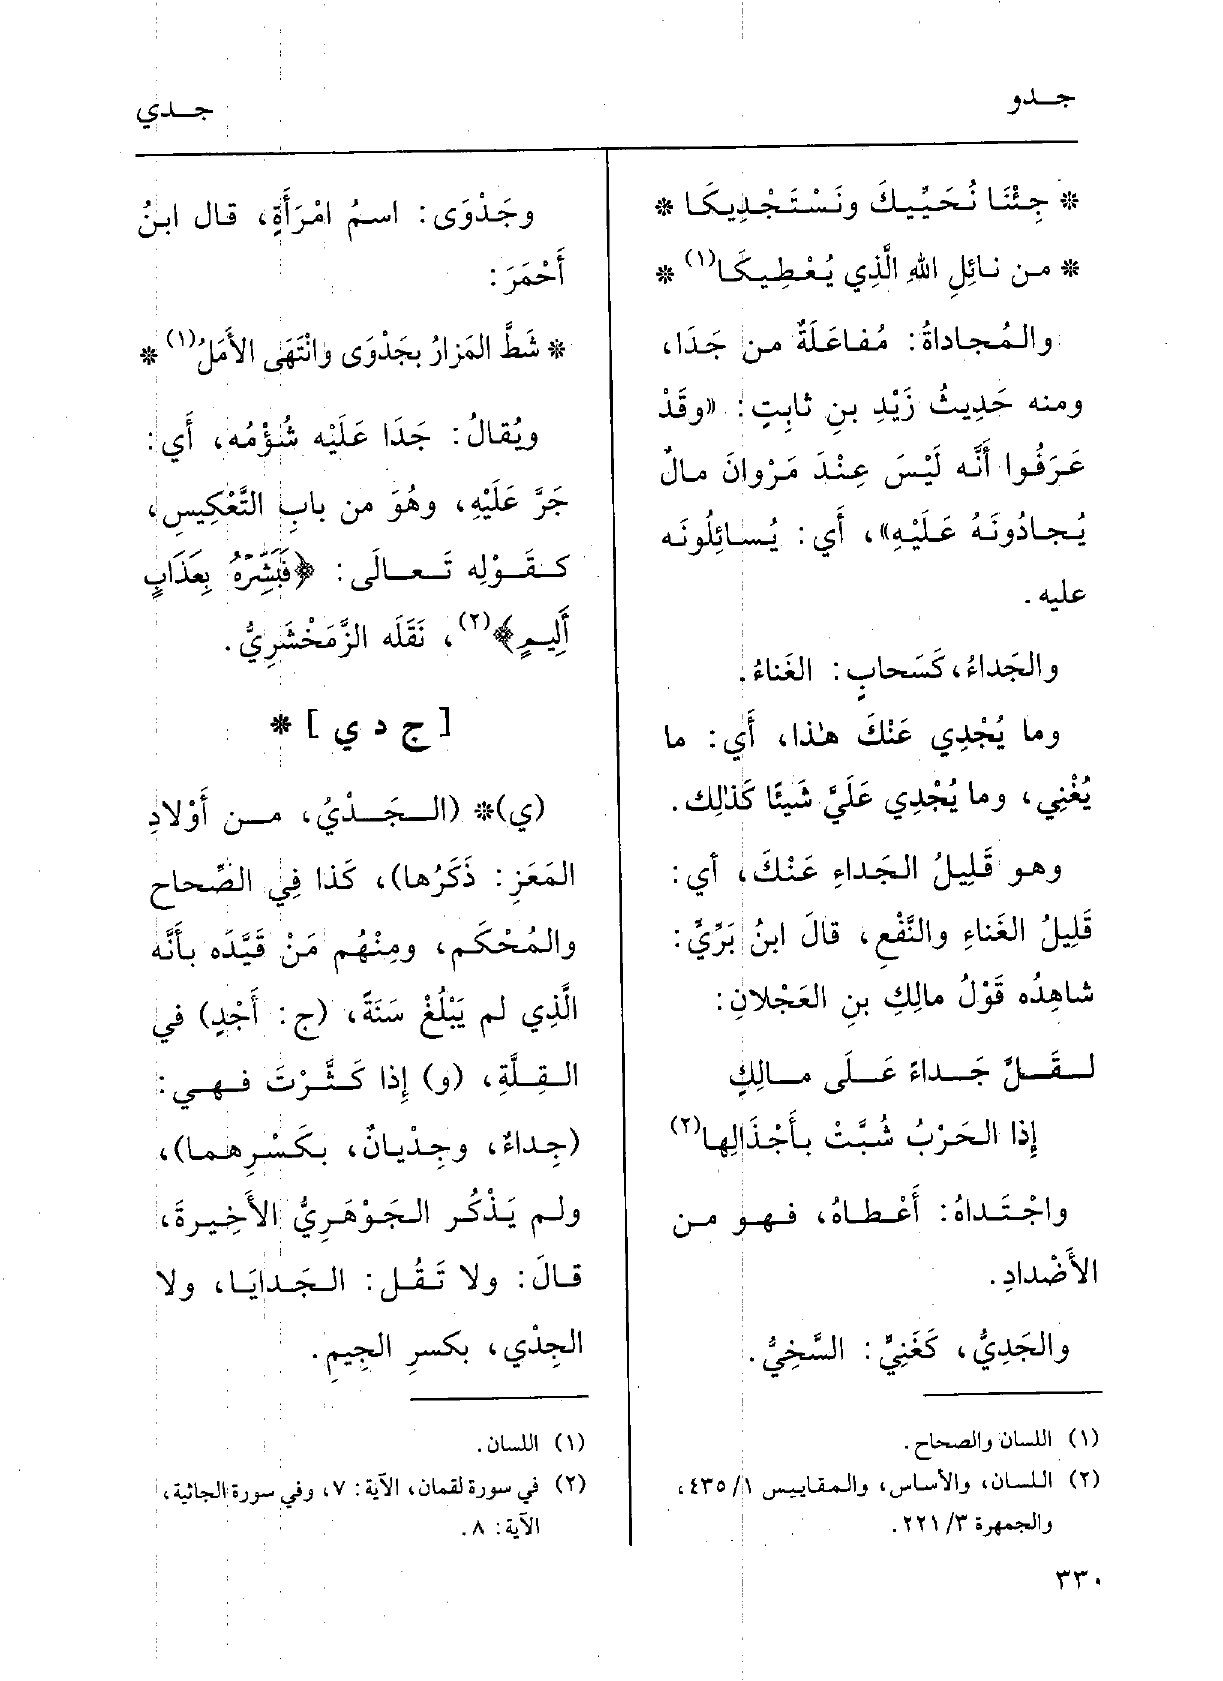 جـدو
جـدي
* جِئْنَا نُحَيِّيكَ ونَسْتَجْدِيكَا *
* من نائِلِ اللهِ الَّذِي يُعْطِيكَا(١) *
والمُجاداةُ: مُفاعَلَةٌ من جَدَا،
ومنه حَدِيثُ زَيْدِ بنِ ثابِتٍ: «وقَدْ
عَرَفُوا أَنَّه لَيْسَ عِنْدَ مَرْوانَ مالٌ
يُجادُونَهُ عَلَيْهِ»، أَي: يُسائِلُونَه
عليه.
والجَداءُ، كَسَحابٍ: الغَناءُ.
وما يُجْدِي عَنْكَ هٰذا، أَي: ما
يُغْنِي، وما يُجْدِي عَلَيَّ شَيئًا كَذٰلِك.
وهو قَلِيلُ الجَداءِ عَنْكَ، أي:
قَلِيلُ الغَناءِ والنَّفْعِ، قالَ ابنُ بَرِّيٍّ:
شاهِدُه قَوْلُ مالِكِ بنِ العَجْلانِ:
لَـقَـلَّ جَـداءً عَـلَى مـالِكٍ
إِذا الحَرْبُ شُبَّتْ بأَجْذَالِها(٢)
واجْتَداهُ: أَعْطاهُ، فهو من
الأَضْدادِ.
والجَدِيُّ، كَغَنِيٍّ: السَّخِيُّ.
(١) اللسان والصحاح.
(٢) اللسان، والأساس، والمقاييس ١/ ٤٣٥،
والجمهرة ٣/ ٢٢١.
وجَدْوَى: اسمُ امْرَأَةٍ، قال ابنُ
أَحْمَرَ:
* شَطَّ المَزارُ بجَدْوَى وانْتَهَى الأَمَلُ(١) *
ويُقالُ: جَدَا عَلَيْه شُؤْمُه، أَي:
جَرَّ عَلَيْهِ، وهُوَ من بابِ التَّعْكِيسِ،
كـقَـوْلِه تَـعـالَى: ﴿فَبَشِّرْهُ بِعَذَابٍ
أَلِيمٍ﴾(٢)، نَقَلَه الزَّمَخْشَرِيُّ.
[ج د ي] *
(ي)* (الـجَـدْيُ، مـن أَوْلادِ
المَعَزِ: ذَكَرُها)، كَذا فِي الصِّحاح
والمُحْكَم، ومِنْهُم مَنْ قَيَّدَه بأَنَّه
الَّذِي لم يَبْلُغْ سَنَةً، (ج: أَجْدٍ) في
القِلَّةِ، (و) إِذا كَثُرَتْ فـهـي:
(جِداءٌ، وجِدْيانٌ، بكَسْرِهما)،
ولم يَذْكُر الجَوْهَرِيُّ الأَخِيرةَ،
قالَ: ولا تَقُل: الجَدايَا، ولا
الجِدْي، بكسرِ الجِيمِ.
(١) اللسان.
(٢) في سورة لقمان، الآية: ٧، وفي سورة الجاثية،
الآية: ٨.
٣٣٠